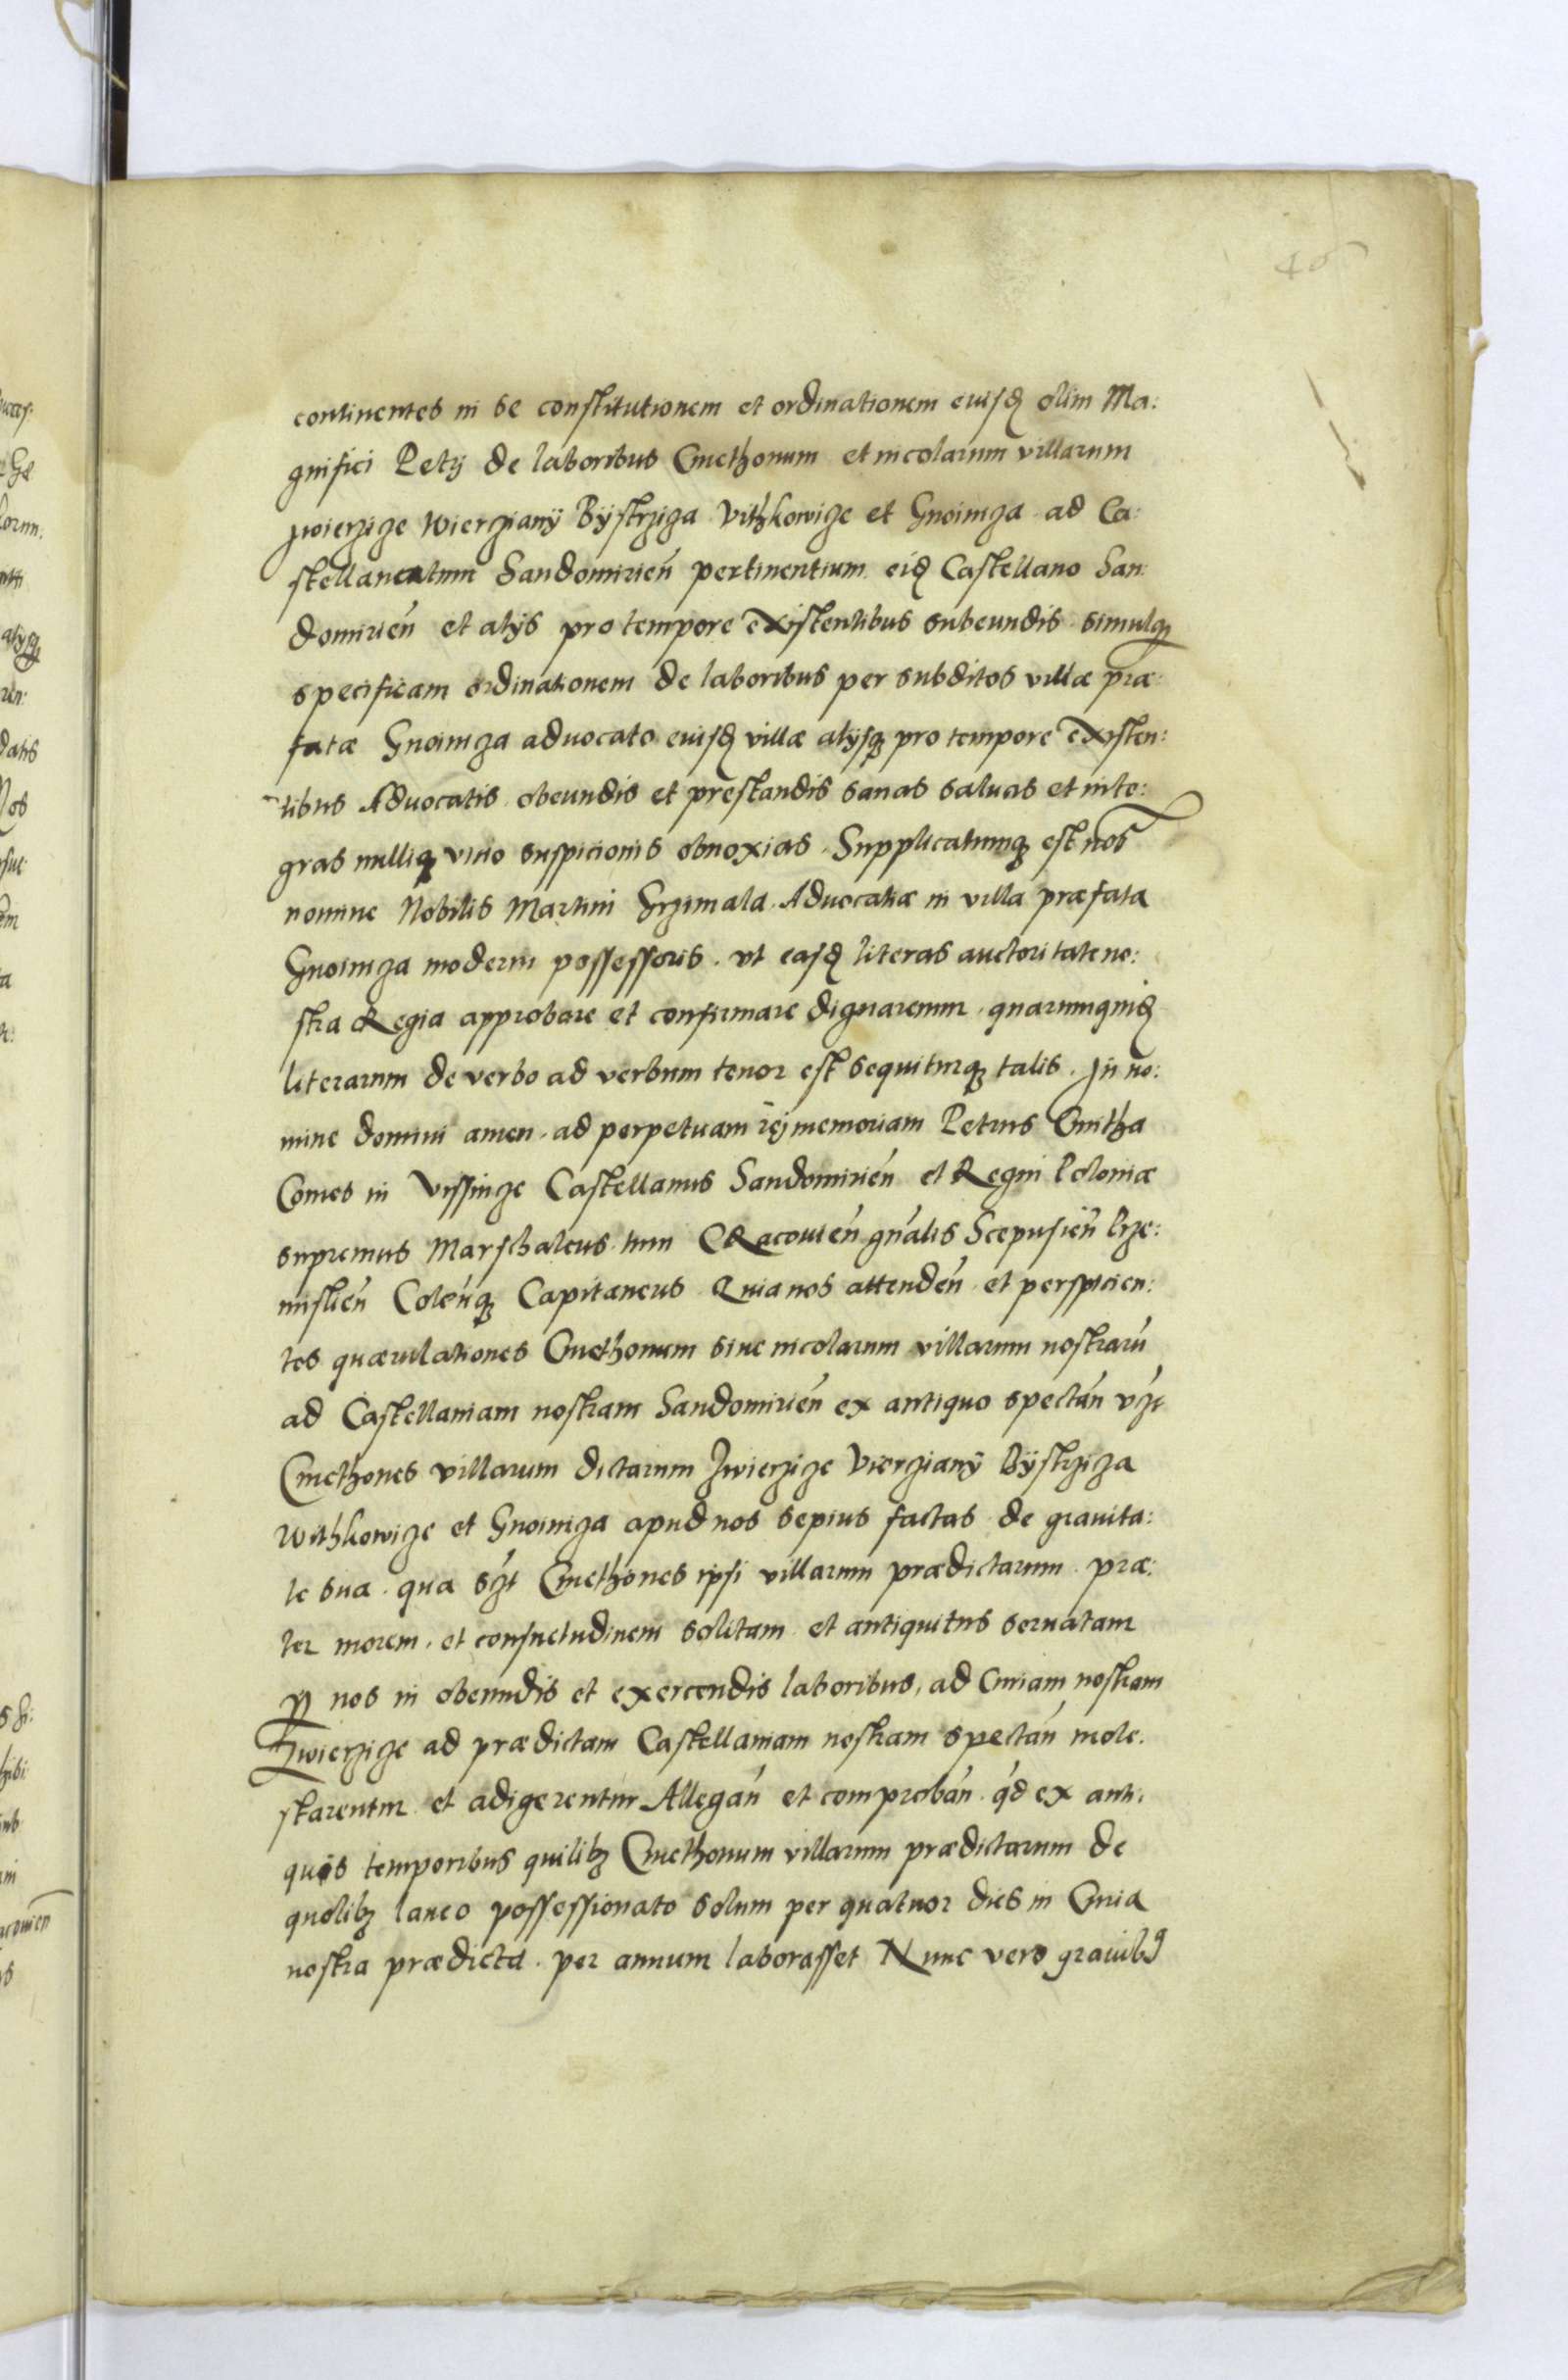 40
continentes in se constitutionem et ordinationem eiusd olim Ma:
gnifici Petri de laboribus Cmethonum et incolarum villarum
Zwierzize Wierziany Bystrziza Vithkowize et Gnoiniza ad Ca:
stellaneatum Sandomirien̄ pertinentium eid Castellano San:
domirien̄ et alÿs pro tempore existentibus subeundis simulqꝫ
specificam ordinationem de laboribus per subditos villæ præ:
fatæ Gnoiniza aduocato eiusd villæ alÿsqꝫ pro tempore existen:
tibus Aduocatis obeundis et prestandis sanas saluas et inte:
gras nulliqꝫ vitio suspicionis obnoxias. Supplicatumqꝫ est nobis
nomine Nobilis Martini Grzimala Aduocatiæ in villa præfata
Gnoiniza moderni possessoris. vt easd literas auctoritate no:
stra Regia approbare et confirmare dignaremur. quarumquid
literarum de verbo ad verbum tenor est sequiturqꝫ talis. In no:
mine domini amen. ad perpetuam rei memoriam Petrus Cmitha
Comes in Vissnize Castellanus Sandomirien̄ et Regni Poloniæ
supremus Marschalcus. tum CRacouien̄ gn̄alis Scepusien̄ Prze:
mislien̄ Colen̄qꝫ Capitaneus Quia nos attenden̄ et perspicien:
tes quærulationes Cmethonum siue incolarum villarum nostraru̅
ad Castellaniam nostram Sandomirien̄ ex antiquo spectan̄ vzt
Cmethones villarum dictarum Zwierzize Vierziany Bystrziza
Withkowize et Gnoiniza apud nos sepius factas de grauita:
te sua. qua szt Cmethones ipsi villarum prædictarum. præ:
ter morem. et consuetudinem solitam et antiquitus seruatam
ꝑ nos in obeundis et exercendis laboribus, ad Curiam nostram
Zwierzize ad prædictam Castellaniam nostram spectan̄ mole.
starentur et adigerentur Allegan̄ et comproban̄ qd ex anti.
quis temporibus quilibꝫ Cmethonum villarum prædictarum de
quolibꝫ laneo possessionato solum per quatuor dies in Curia
nostra prædicta. per annum laborasset Nunc vero grauibꝰ